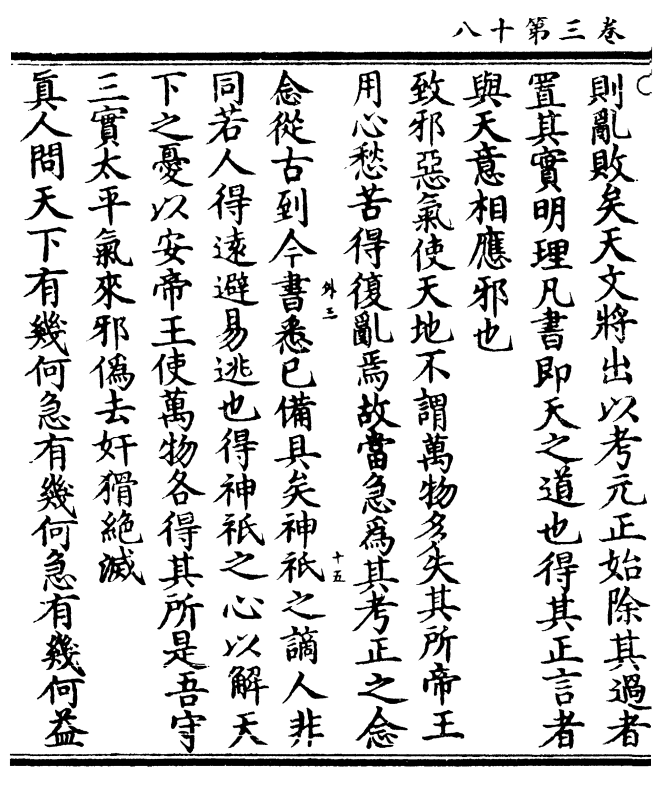 卷三第十八
則亂敗矣天文將出以考元正始除其過者
置其實明理凡書即天之道也得其正言者
與天意相應邪也
致邪惡氣使天地不謂萬物多失其所帝王
用心愁苦得復亂焉故當急爲其考正之念
念從古到今書悉已備具矣神祇之謫人非
外三
十五
同若人得遠避易逃也得神祇之心以解天
下之憂以安帝王使萬物各得其所是吾守
三實太平氣來邪僞去奸猾絶滅
眞人問天下有幾何急有幾何急有幾何益